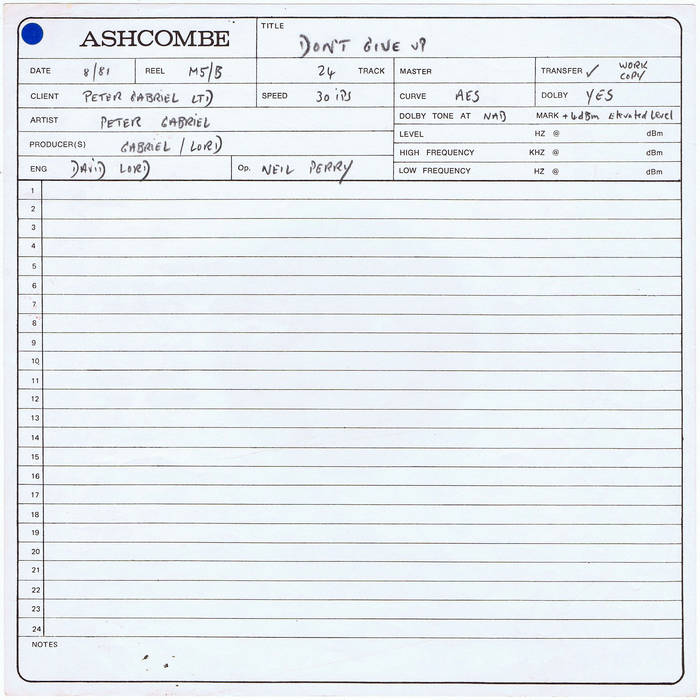 ASHCOMBE
TITLE
DON'T GIVE UP
DATE 8/81 REEL M5/B 24 TRACK MASTER TRANSFER ✓ WORK COPY
CLIENT PETER GABRIEL LTD SPEED 30 iPS CURVE AES DOLBY YES
ARTIST PETER GABRIEL DOLBY TONE AT NAB MARK +6dBm Elevated Level
PRODUCER(S) GABRIEL / LORD LEVEL HZ @ dBm
HIGH FREQUENCY KHZ @ dBm
ENG DAVID LORD Op. NEIL PERRY LOW FREQUENCY HZ @ dBm
1
2
3
4
5
6
7
8
9
10
11
12
13
14
15
16
17
18
19
20
21
22
23
24
NOTES